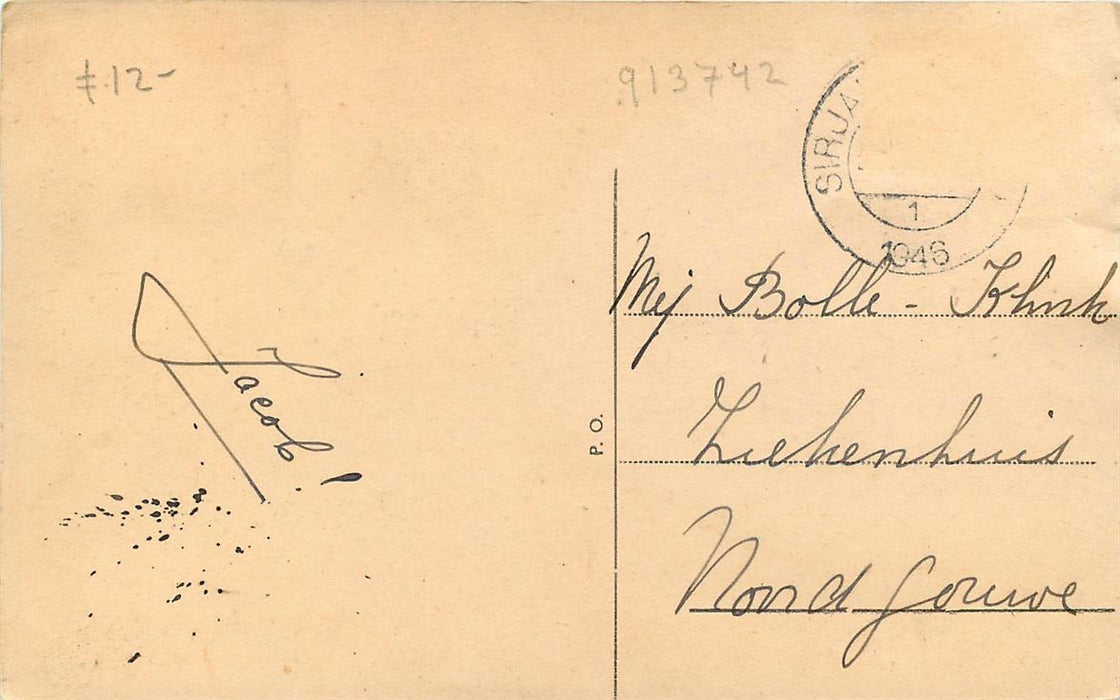 f 12-
913742
SIRJA
1
1946
Mej Bolle - Klink
P. O.
Jacob!
Ziekenhuis
Noord Gouwe